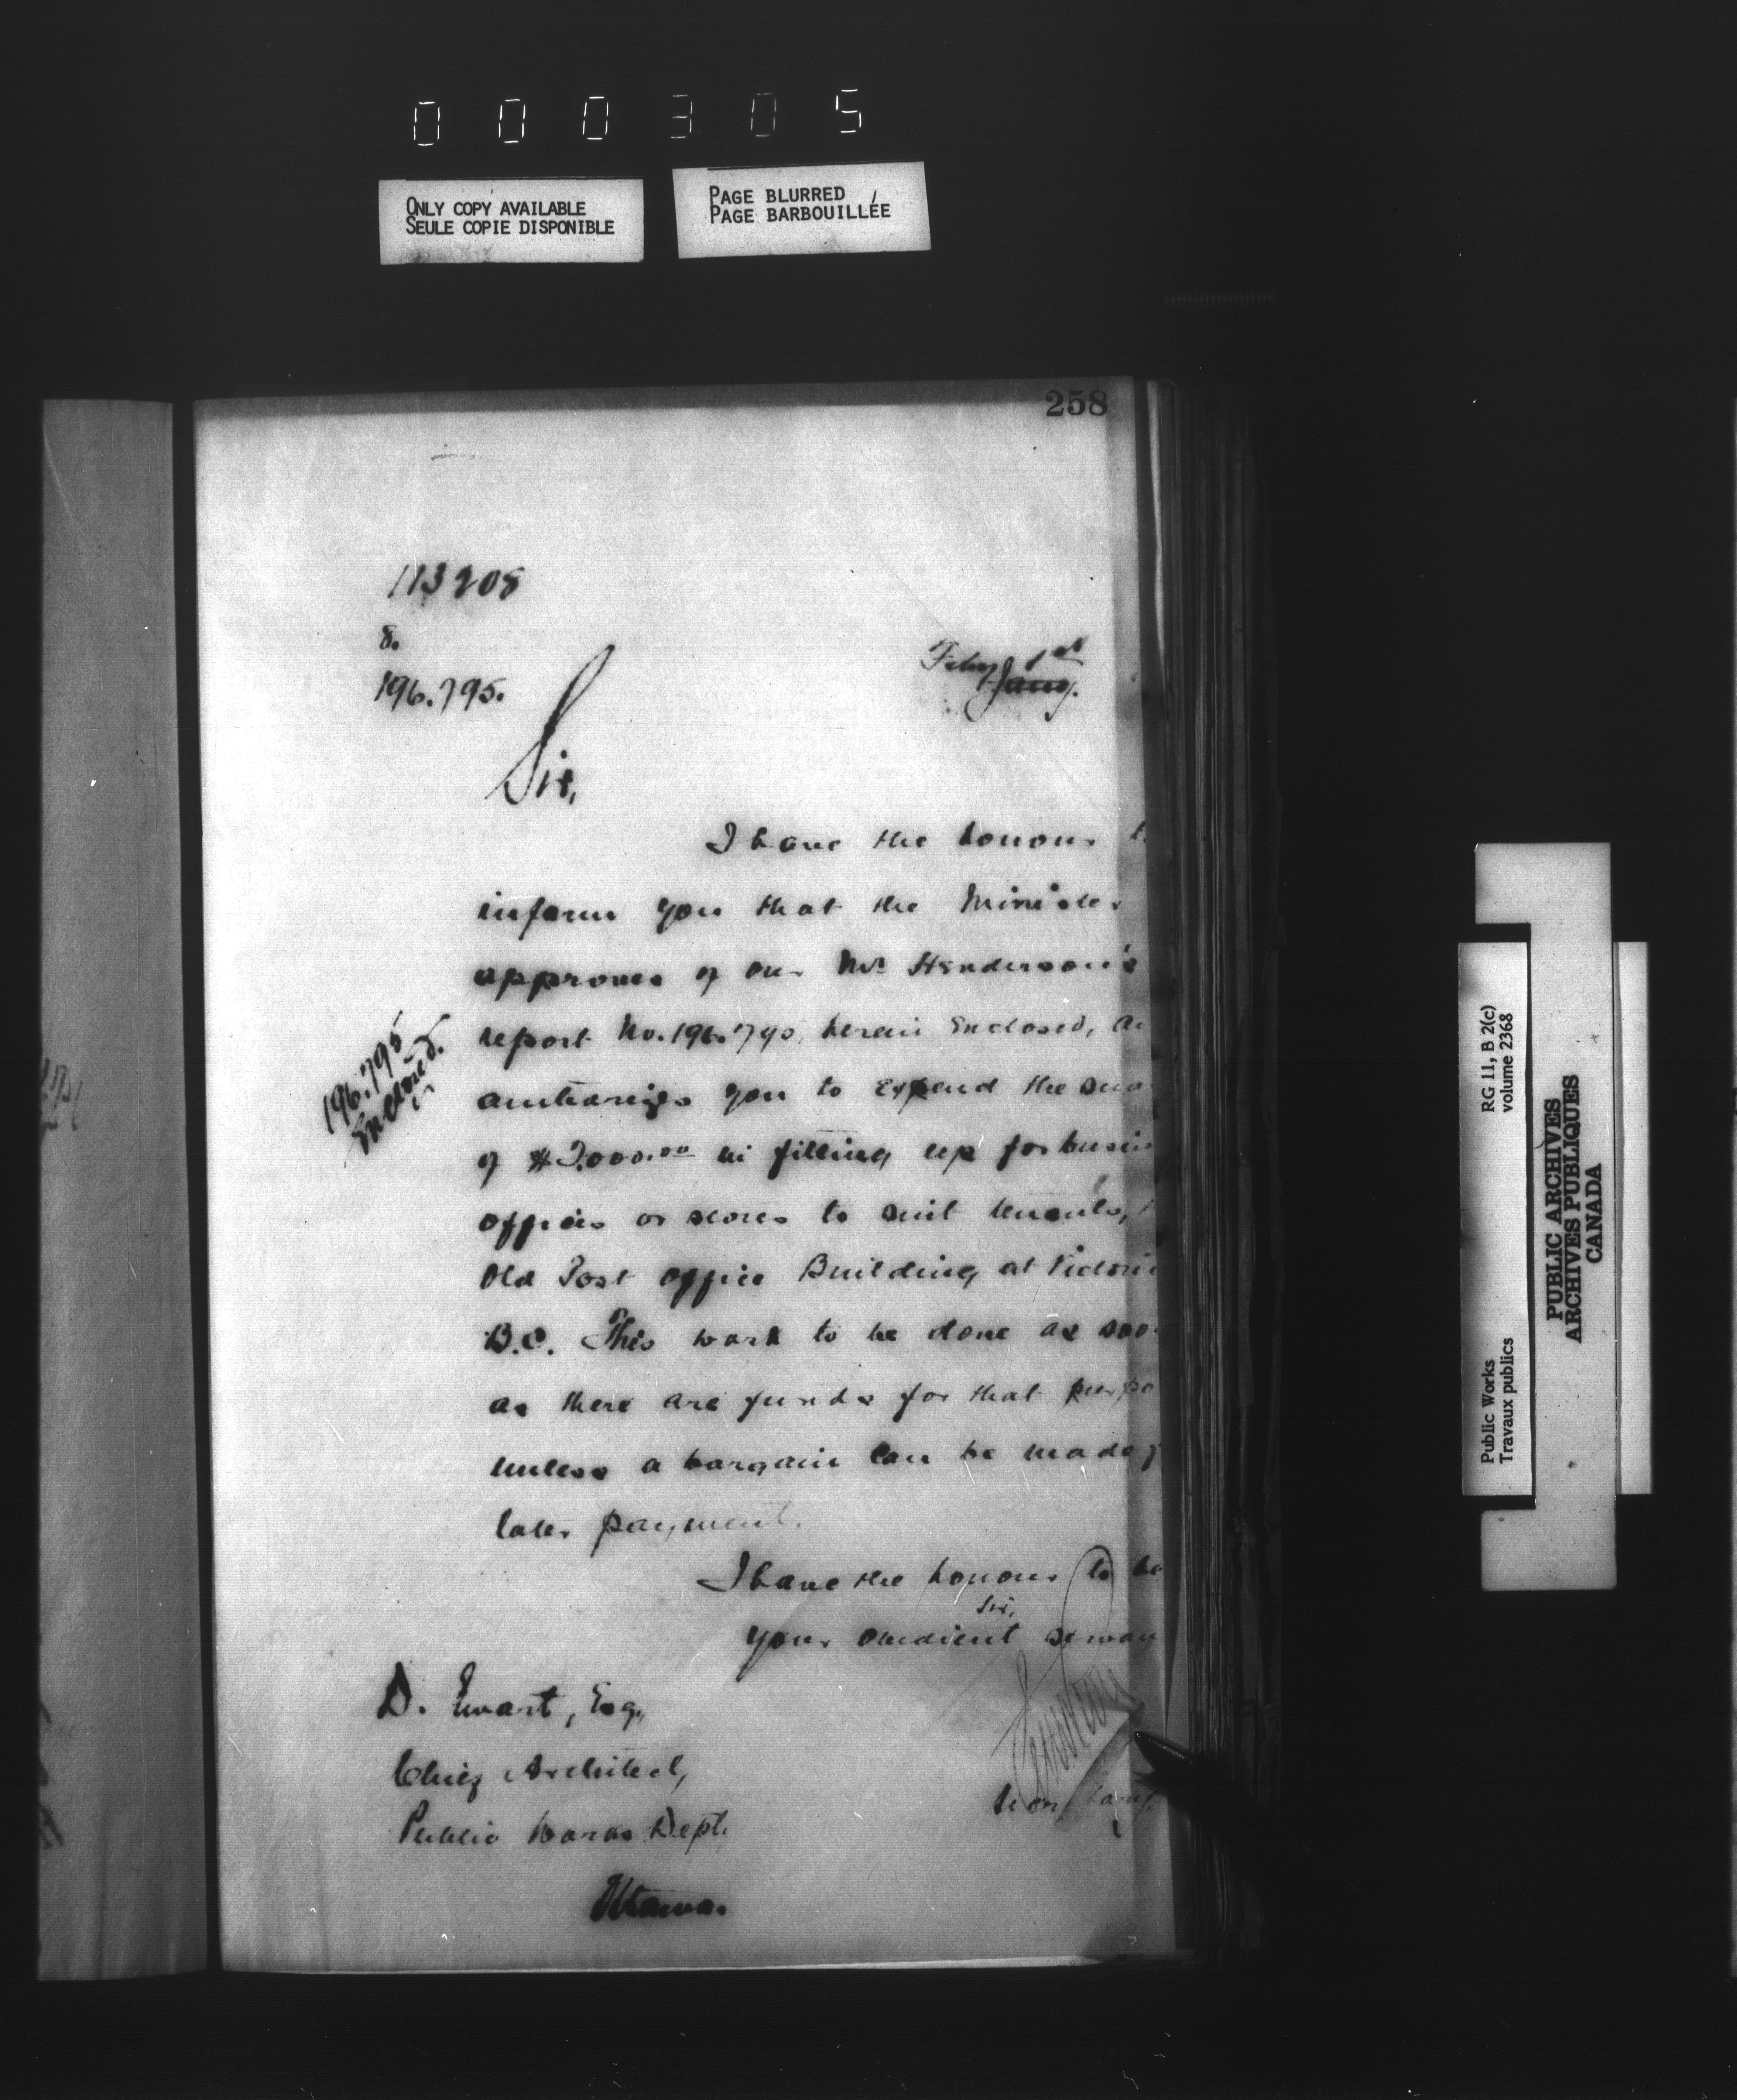 000305
ONLY COPY AVAILABLE
SEULE COPIE DISPONIBLE
PAGE BLURRED
PAGE BARBOUILLÉE
258
113208
8.
196.795.
Feby 1st
Jany.
Sir,
I have the honour t
inform you that the Minister
approves of our Mr Henderson's
report No. 196.790, herein enclosed, an
196.795
Enclosed.
authorizes you to expend the sum
of $2.000.00 in fitting up for busin
offices or stores to suit tenants,
Old Post Office Building at Victori
B.C. This work to be done as soo
as there are funds for that purpo
unless a bargain can be made f
later payment.
I have the honour to be
Sir,
your obedient servan
D. Ewart, Esq.,
Chief Architect,
Public Works Dept.
Ottawa.
RG 11, B 2(c)
volume 2368
Public Works
Travaux publics
PUBLIC ARCHIVES
ARCHIVES PUBLIQUES
CANADA